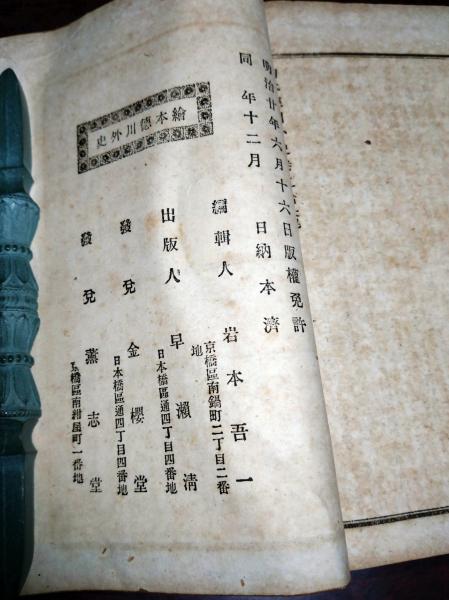 明治廿年六月十六日版權免許
同年十二月　日納本濟
繪本德川外史
編輯人　岩本吾一
京橋區南鍋町二丁目二番
地
出版人　早瀬清
日本橋區通四丁目四番地
發兌　金櫻堂
日本橋區通四丁目四番地
發兌　薫志堂
京橋區南紺屋町一番地